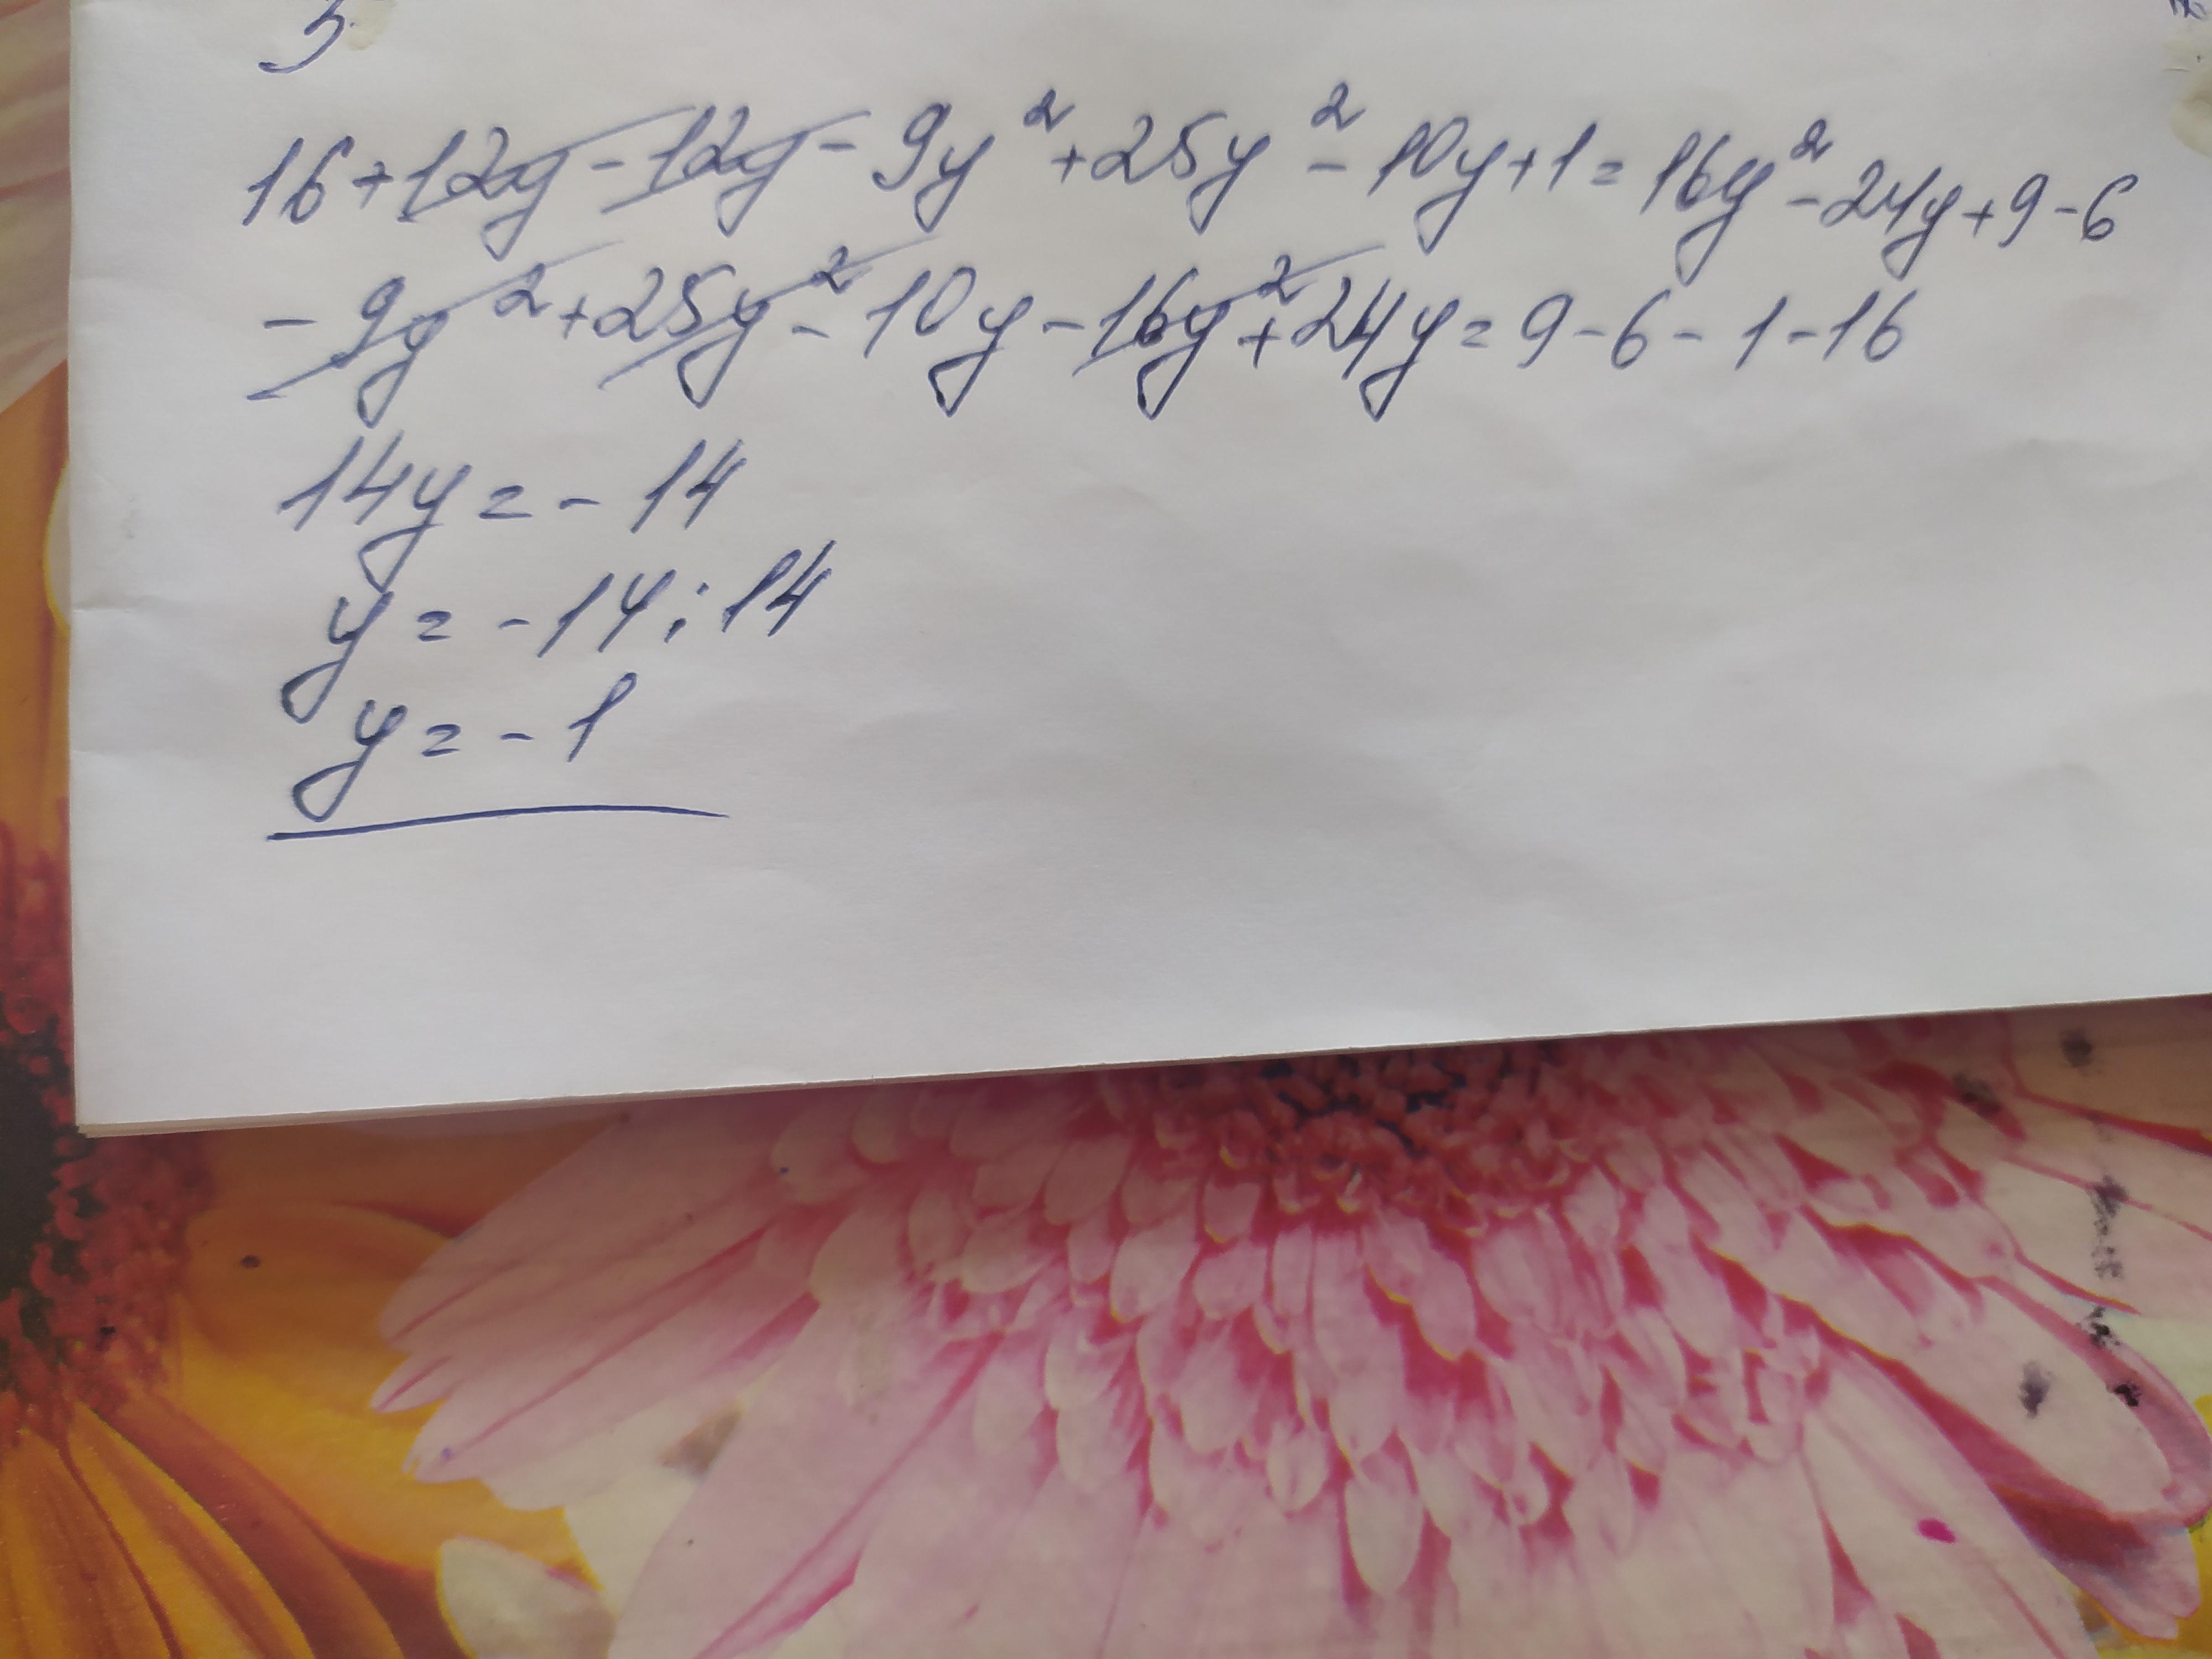 16+12y-12y-9y²+25y²-10y+1=16y²-24y+9-6
-9y²+25y²-10y-16y²+24y=9-6-1-16
14y=-14
y=-14:14
y=-1